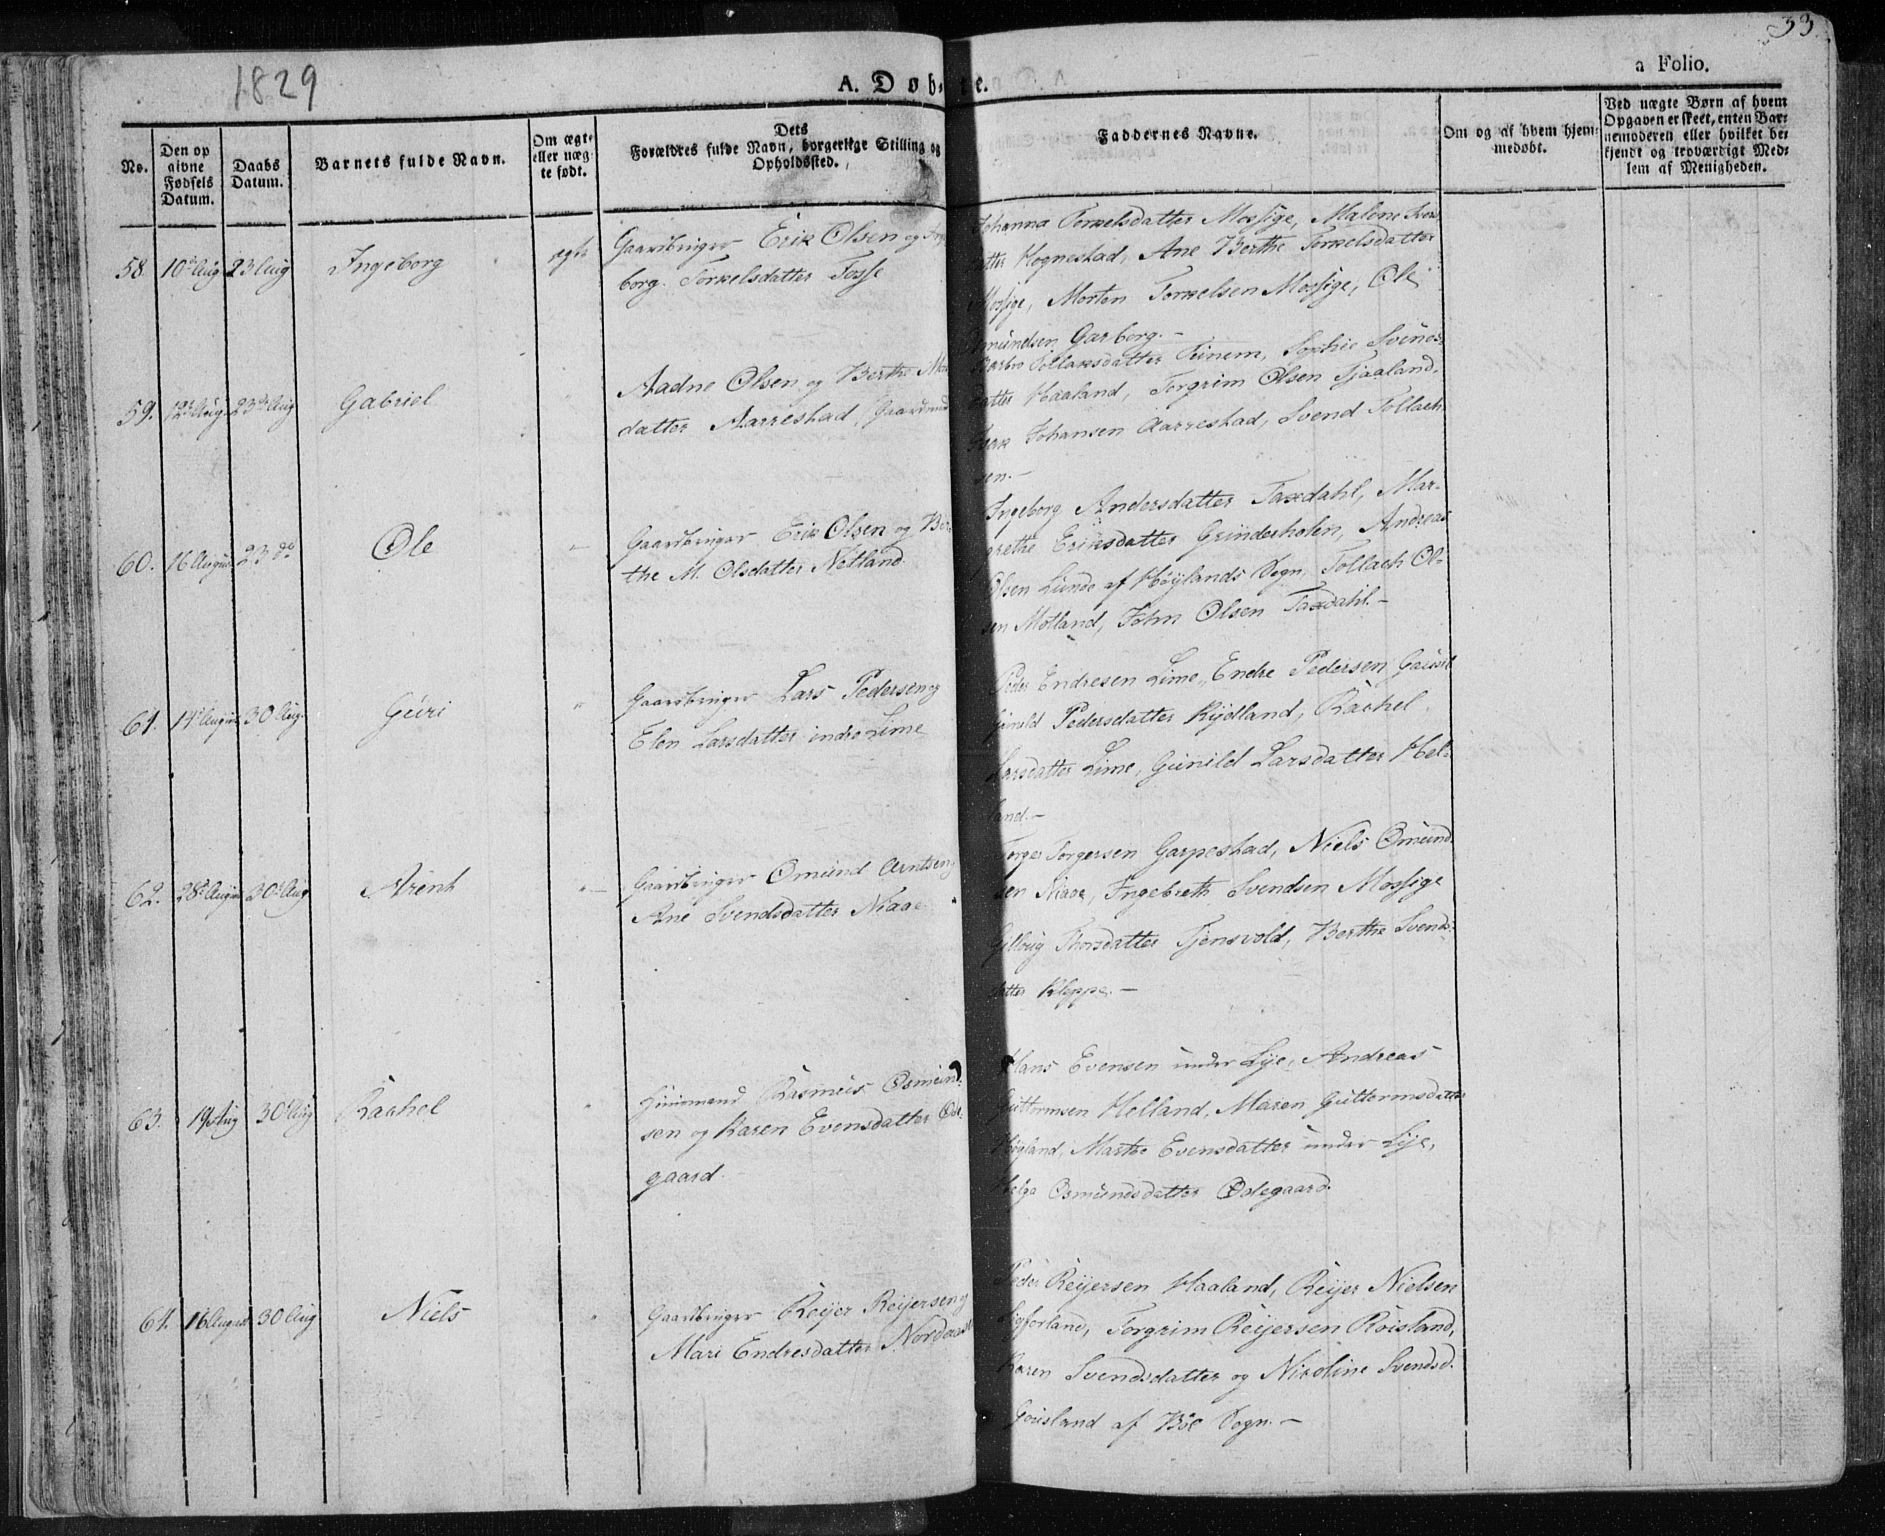 33
1829
A. Døbte.
a Folio.
No.
Den opgivne Fødsels Datum.
Daabs Datum.
Barnets fulde Navn.
Om ægte eller nægte født.
Dets Forældres fulde Navn, borgerlige Stilling og Opholdssted.
Faddernes Navne.
Om og af hvem hjemmedøbt.
Ved nægte Børn af hvem Opgaven er skeet, enten Barnemoderen eller hvilket bekjendt og troværdigt Medlem af Menigheden.
58. 10d Aug 23 Aug Ingeborg ægte
Gaardbruger Erik Olsen og Inge
borg Torkelsdatter Fosse
Johanna Torkelsdatter Mossige, Malene
datter Hognestad, Ane Berthe Torkelsdatter
Mossige, Morten Torkelsen Mossige, Ole
Osmundsen Garborg. -
59. 12d Aug 23d Aug Gabriel
Aadne Olsen og Berthe
datter Aarrestad, Gaardmd
Tollaksdatter Tunem, Sophie Svends
datter Haaland, Torgrim Olsen Tjaaland,
Johansen Aarrestad, Svend Tollach
sen. -
60. 16 August 23 do Ole "
Gaardbruger Erik Olsen og Ber
the M. Olsdatter Netland.
Ingeborg Andersdatter Taxdahl, Mar-
grethe Eriksdatter Grinderholen, Andreas
Olsen Lunde af Høylands Sogn, Tollach Ol-
sen Motland, John Olsen Taxdahl. -
61. 14d August 30 Aug. Guri "
Gaardbruger Lars Pedersen og
Elen Larsdatter indre Lime
Peder Endresen Lime, Endre Pedersen
Gunild Pedersdatter Rydland, Rachel
Larsdatter Lime, Gunild Larsdatter Hel-
land. -
62. 28d August 30d Aug Arent "
Gaardbruger Omund Arntsen og
Ane Svendsdatter Niaae
Torger Torgersen Garpestad, Niels Omund
sen Niaae, Ingebreth Svendsen Mossige
Thorsdatter Tjensvold, Berthe Svends-
datter Kleppe. -
63. 19 Aug 30d Aug Rachel "
Huusmand Rasmus Osmund-
sen og Karen Evensdatter Øde-
gaard.
Hans Evensen under Lye, Andreas
Guttormsen Helland, Maren Guttormsdatter
Høyland, Marthe Evensdatter under Lye,
Helga Osmundsdatter Ødegaard.
64. 16 August 30 Aug Niels "
Gaardbruger Reijer Reijersen og
Mari Endresdatter Nordaas
Peder Reijersen Haaland, Reijer Nielsen
Torgrim Reijersen Røisland,
Karen Svendsdatter og Nicoline Svendsd.
af Bøe Sogn. -